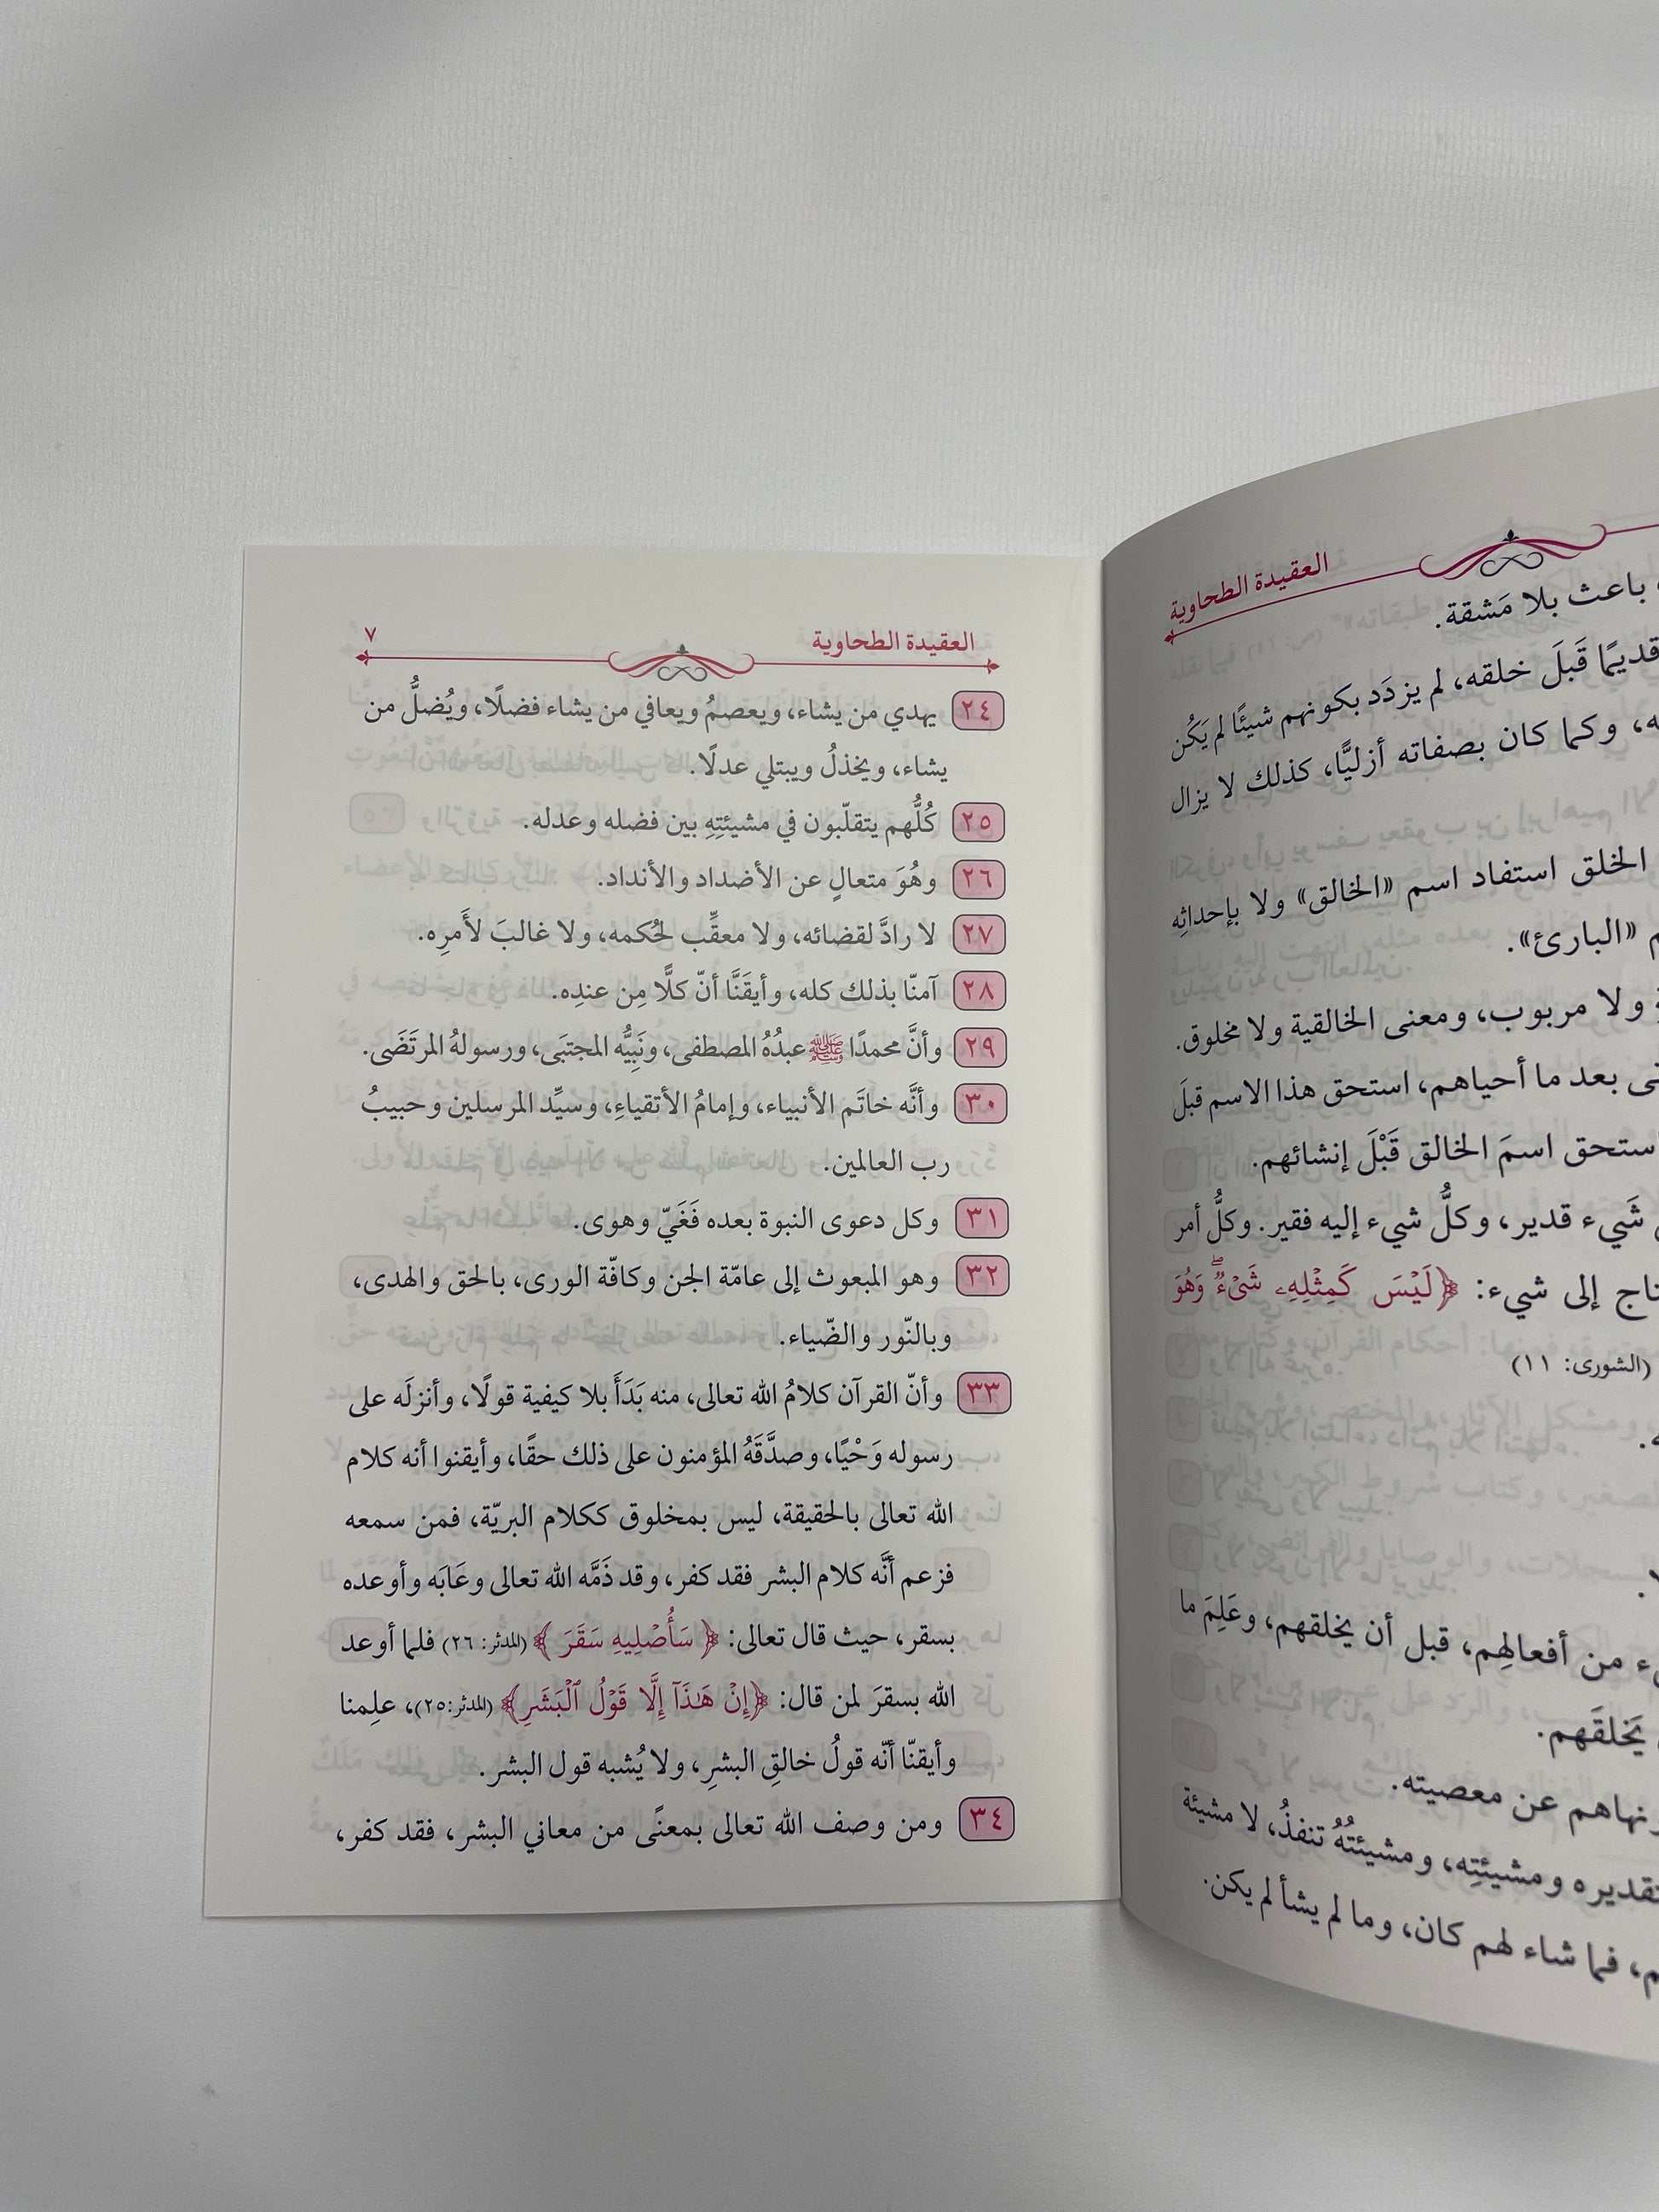 العقيدة الطحاوية
باعث بلا مَشقة.
قديمًا قَبلَ خلقه، لم يزدَد بكونهم شيئًا لم يَكُن
وكما كان بصفاته أزليًّا، كذلك لا يزال
الخلق استفاد اسم «الخالق» ولا بإحداثِه
«البارئ».
ولا مربوب، ومعنى الخالقية ولا مخلوق.
بعد ما أحياهم، استحق هذا الاسم قبلَ
استحق اسمَ الخالق قَبْلَ إنشائهم.
شَيء قدير، وكلُّ شيء إليه فقير. وكلُّ أمر
إلى شيء: ﴿لَيْسَ كَمِثْلِهِۦ شَىْءٌۖ وَهُوَ
(الشورى: ١١)
من أفعالهِم، قبل أن يخلقهم، وعَلِمَ ما
يَخلقَهم.
ونهاهم عن معصيته.
ومشيئتِه، ومشيئتُهُ تنفذُ، لا مشيئة
فما شاء لهم كان، وما لم يشأ لم يكن.
العقيدة الطحاوية ٧
٢٤ يهدي من يشاء، ويعصمُ ويعافي من يشاء فضلًا، ويُضلُّ من
يشاء، ويخذلُ ويبتلي عدلًا.
٢٥ كُلُّهم يتقلّبون في مشيئتِهِ بين فضله وعدله.
٢٦ وهُوَ متعالٍ عن الأضداد والأنداد.
٢٧ لا رادَّ لقضائه، ولا معقِّب لحُكمه، ولا غالبَ لأَمرِه.
٢٨ آمنّا بذلك كله، وأيقَنَّا أنّ كلًّا مِن عندِه.
٢٩ وأنَّ محمدًا ﷺ عبدُهُ المصطفى، ونَبِيُّه المجتبَى، ورسولهُ المرتَضَى.
٣٠ وأنَّه خاتَم الأنبياء، وإمامُ الأتقياءِ، وسيِّد المرسلين وحبيبُ
رب العالمين.
٣١ وكل دعوى النبوة بعده فَغَيّ وهوى.
٣٢ وهو المبعوث إلى عامّة الجن وكافّة الورى، بالحق والهدى،
وبالنّور والضّياء.
٣٣ وأنّ القرآن كلامُ الله تعالى، منه بَدَأَ بلا كيفية قولًا، وأنزلَه على
رسوله وَحْيًا، وصدَّقَهُ المؤمنون على ذلك حقًا، وأيقنوا أنه كلام
الله تعالى بالحقيقة، ليس بمخلوق ككلام البريّة، فمن سمعه
فزعم أنَّه كلام البشر فقد كفر، وقد ذَمَّه الله تعالى وعَابَه وأوعده
بسقر، حيث قال تعالى: ﴿سَأُصْلِيهِ سَقَرَ﴾ (المدثر: ٢٦) فلما أوعد
الله بسقرَ لمن قال: ﴿إِنْ هَٰذَآ إِلَّا قَوْلُ ٱلْبَشَرِ﴾ (المدثر:٢٥)، علِمنا
وأيقنّا أنّه قولُ خالقِ البشرِ، ولا يُشبه قول البشر.
٣٤ ومن وصف الله تعالى بمعنًى من معاني البشر، فقد كفر،